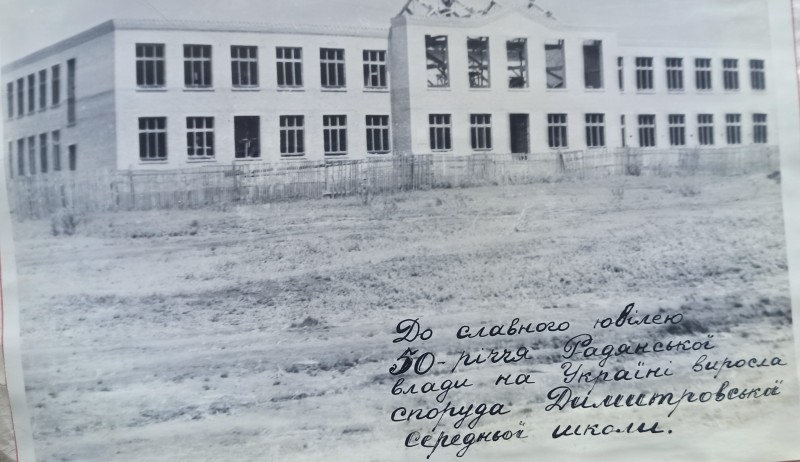 До славного ювілею
50-річчя Радянської
влади на Україні виросла
споруда Димитровської
середньої школи.